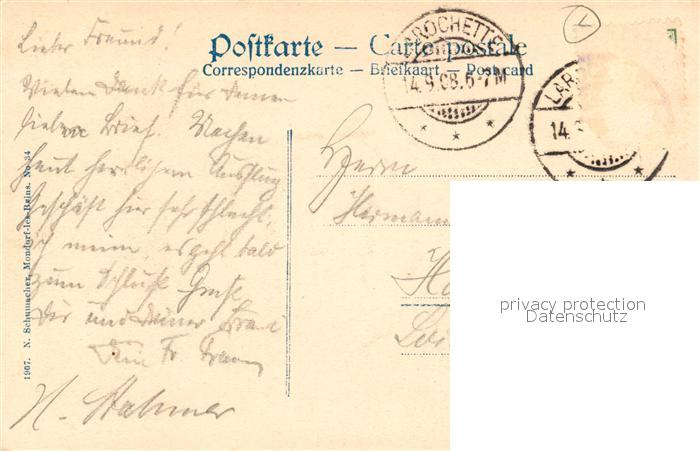 Postkarte — Carte postale
Correspondenzkarte — Briefkaart — Postcard
LAROCHETTE
14.9.08.6-7M
LAR
14.
Lieber Freund!
Vielen Dank für Deinen
lieben Brief. Machen
heut herrlichen Ausflug
Geschäft hier sehr schlecht,
ich meine, es geht bald
zum Schluss. Gruß
Dir und Deiner Frau
Dein Fr.
H. Stahmer
Herrn
Hermann
1907. N. Schumacher, Mondorf-les-Bains. No 34
privacy protection
Datenschutz